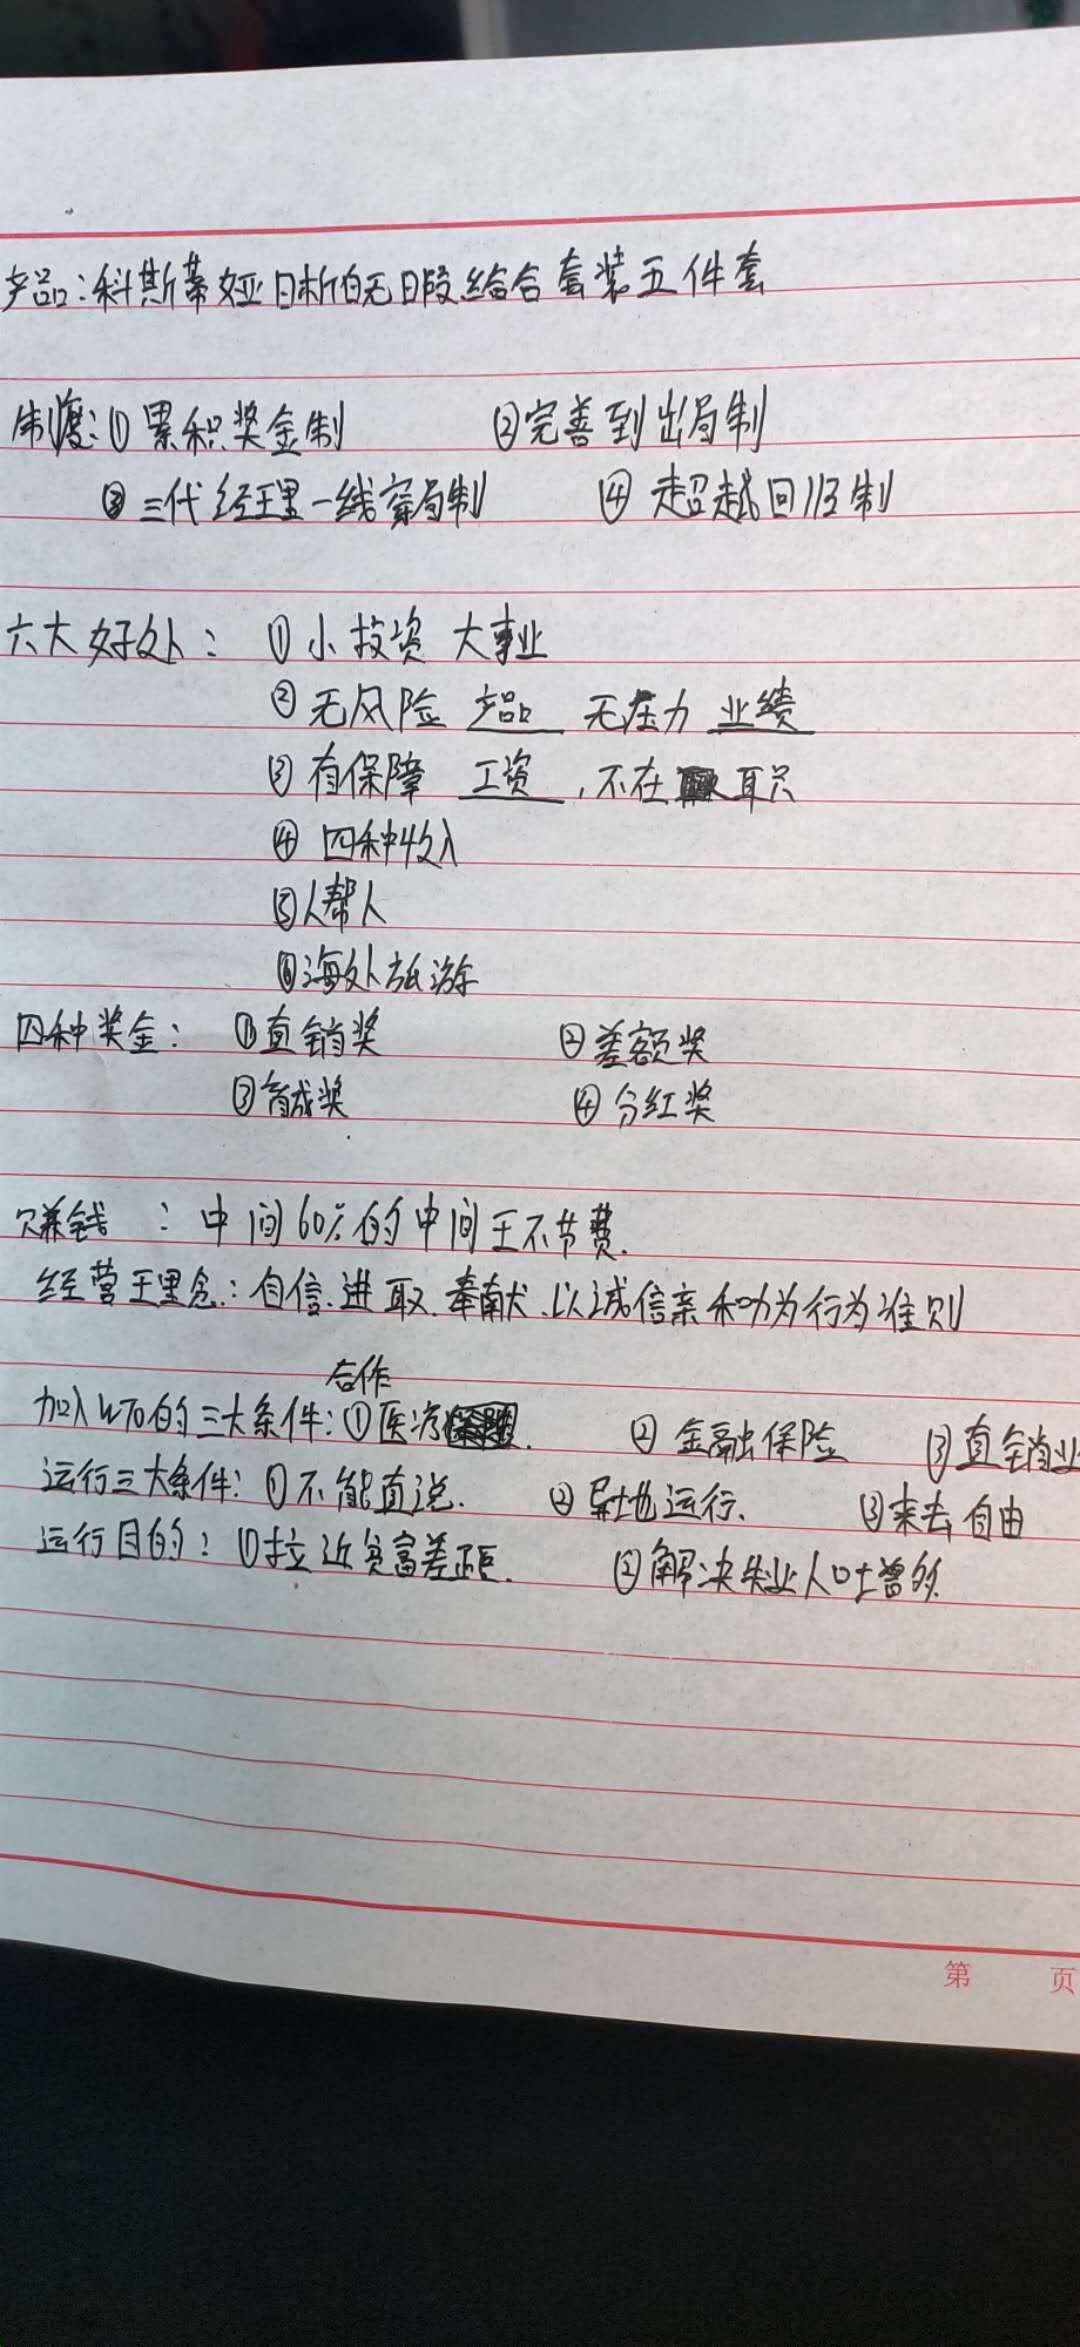 产品:科斯蒂娅日晰白无日段结合套装五件套
制度:①累积奖金制 ②完善到出局制
③三代经理一线穿局制 ④超越回归制
六大好处: ①小投资 大事业
②无风险 产品 无压力 业绩
③有保障 工资,不在职
④四种收入
⑤人帮人
⑥海外旅游
四种奖金: ①直销奖 ②差额奖
③育成奖 ④分红奖
赚钱 :中间60%的中间环节费.
经营理念:自信.进取.奉献.以诚信亲和功为行为准则
合作
加入WTO的三大条件:①医疗. ②金融保险 ③直销业
运行三大条件:①不能直说. ②异地运行. ③来去自由
运行目的:①拉近贫富差距. ②解决失业人口增多.
第 页